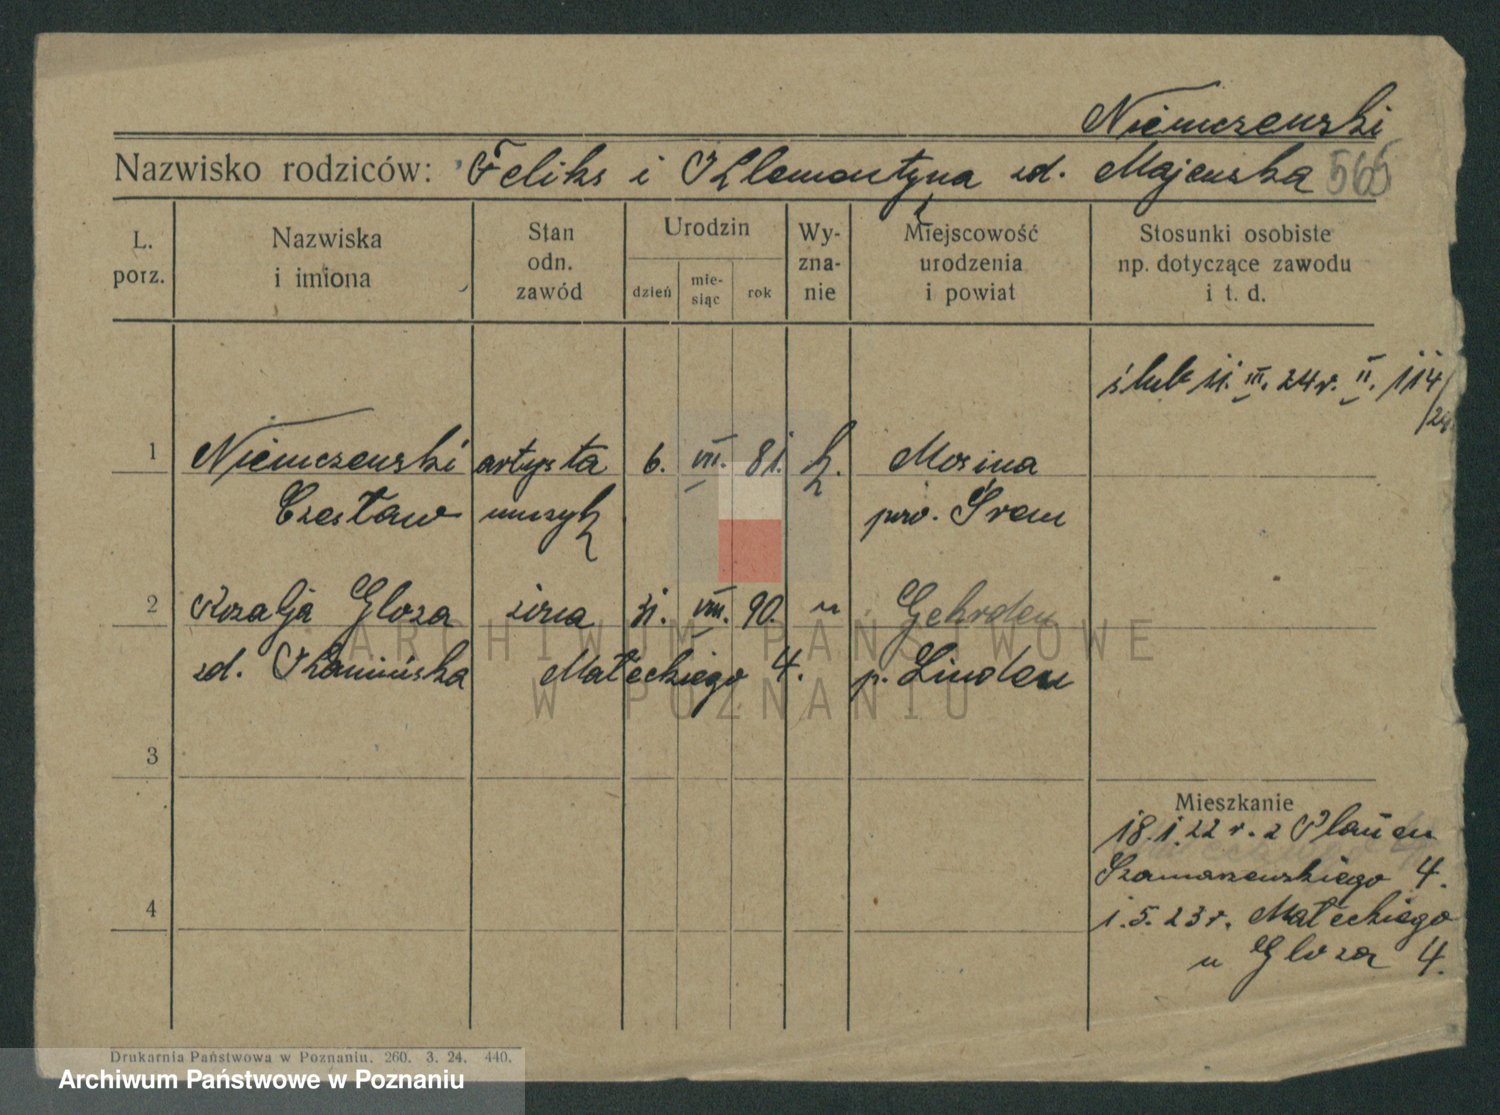 Niemczewski
Nazwisko rodziców: Feliks i Klementyna zd. Majewska 565
L. porz.
Nazwiska i imiona
Stan odn. zawód
Urodzin
dzień
mie-siąc
rok
Wy-zna-nie
Miejscowość urodzenia i powiat
Stosunki osobiste np. dotyczące zawodu i t. d.
ślub 11. III. 24 r. II. 114/24
1 Niemczewski artysta 6. VII. 81. k. Mosina
Czesław muzyk pow. Śrem
2 Rozalja Gloza żona 31. VIII. 90. " Gehrden
zd. Kamińska Małeckiego 4. p. Linden
3
Mieszkanie
18.1.22 r. z Plauen
Szamarzewskiego 4.
4
1.5.23 r. Małeckiego
u Gloza 4.
ARCHIWUM PAŃSTWOWE
W POZNANIU
Drukarnia Państwowa w Poznaniu. 260. 3. 24. 440.
Archiwum Państwowe w Poznaniu